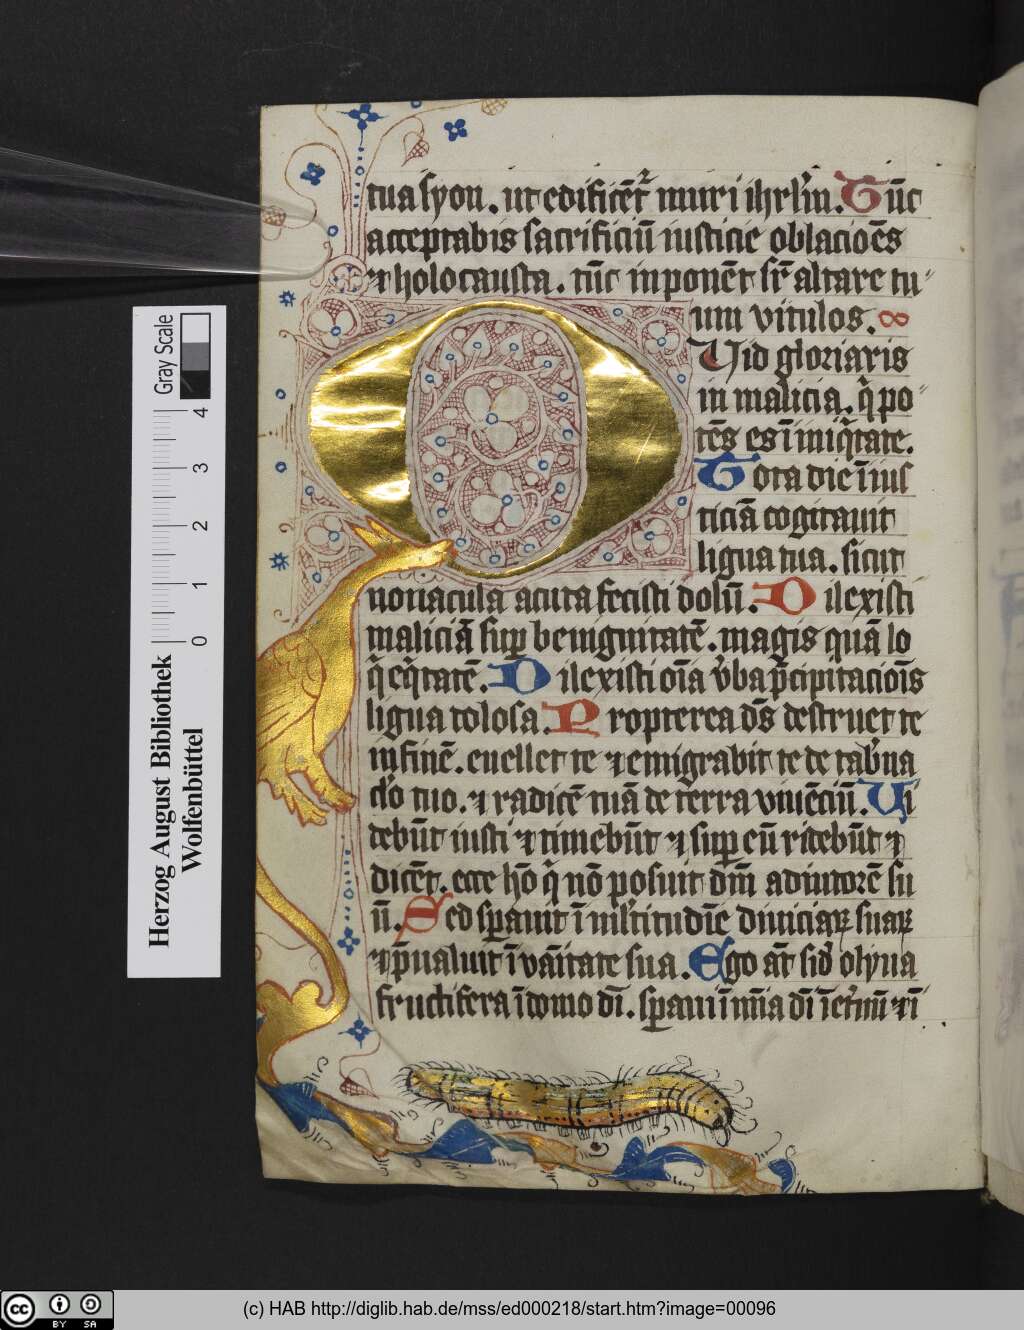 tua syon. ut edificēt᷑ muri ihrl'm. Tūc
acceptabis sacrificiū iusticie oblacoēs
⁊ holocausta. tūc inponēt sr̄ altare tu
um vitulos.
Q
Uid gloriaris
in malicia. q̄ po
tēs es ī iniq̄tate.
Tota die īius
ticiā cogitauit
ligua tua. sicut
nouacula acuta fecisti dolū. Dilexisti
maliciā sup benignitatē. magis quā lo
q̄ eq̄tatē. Dilexisti oīa v̄ba p̄cipitacioīs
ligua dolosa. Propterea dꝰs destruet te
in finē. euellet te ⁊ emigrabit te de tab̄na
c̄lo tuo. ⁊ radicē tuā de terra viuēciū. Ui
debūt iusti ⁊ timebūt ⁊ sup eū ridebūt ⁊
dicēt. ecce hō q̄ nō posuit dm̄ adiutorē su
ū. Sed sp̄auit ī m̄ltitudīe diuiciaꝝ suaꝝ
⁊ p̄ualuit ī vāītate sua. Ego āt sic̄ oliua
fructifera ī domo dī. sp̄aui ī mīa dī īet̄nū ⁊ ī
Gray Scale
0 1 2 3 4
Herzog August Bibliothek
Wolfenbüttel
cc BY SA
(c) HAB http://diglib.hab.de/mss/ed000218/start.htm?image=00096